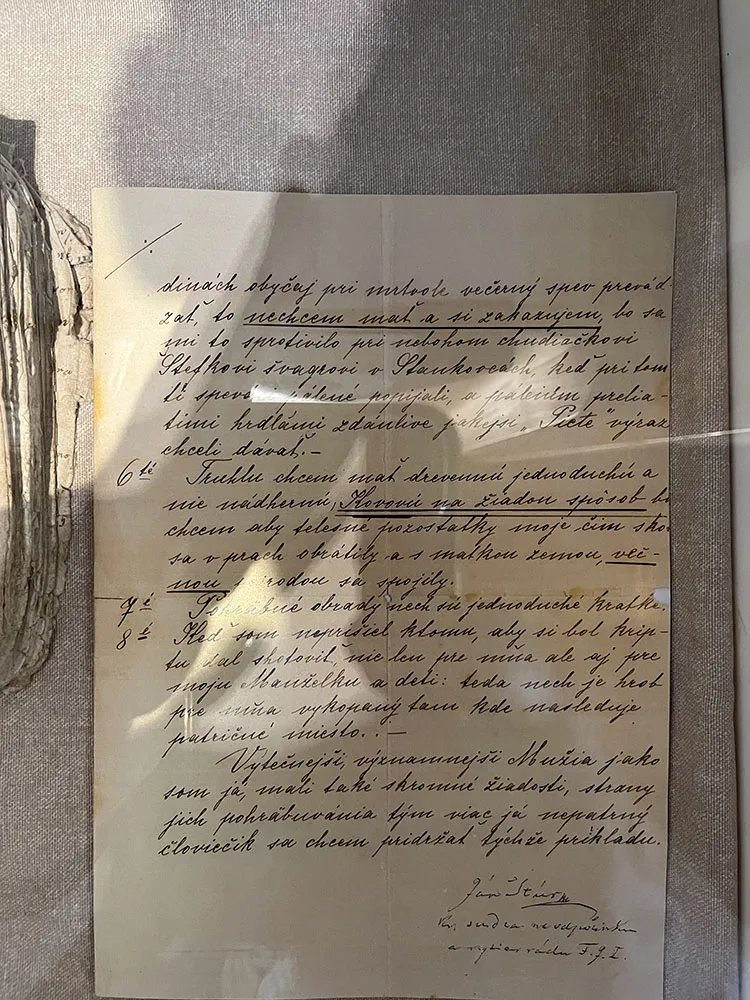 dinách obyčaj pri mrtvole večerný spev prevád-
zať, to nechcem mať a si zakazujem, bo sa
mi to sprotivilo pri nebohom chudiačkovi
Štefkovi švagrovi v Stankovcách, keď pri tom
tí pálené popijali, a páleným prelia-
timi hrdlámi zdánlive jakejsi „Piete“ výraz
chceli dávať.-
6té Truhlu chcem mať drevennú jednoduchú a
nie nádhernú, Kovovú na žiaden spôsob bo
chcem aby telesné pozostatky moje čím sko-
sa v prach obrátily a s matkou zemou, več-
nou sa spojily.
7é Pohrabné obrady nech sú jednoduché kratke.
8é Keď som neprišiel ktomu, aby si bol krip-
tu dal shotoviť, nie len pre mňa ale aj pre
moju Manželku a deti: teda nech je hrob
pre mňa vykopaný tam kde nasleduje
patričné miesto. . —
Vytečnejši, významnejši Mužia jako
som já, mali také skromné žiadosti, strany
jich pohrábuvánia tým viac já nepatrný
človiečik sa chcem pridržať týchže príkladu.
Ján Štúr
kr. sudca na odpočinku
a rytier rádu F. J. I.